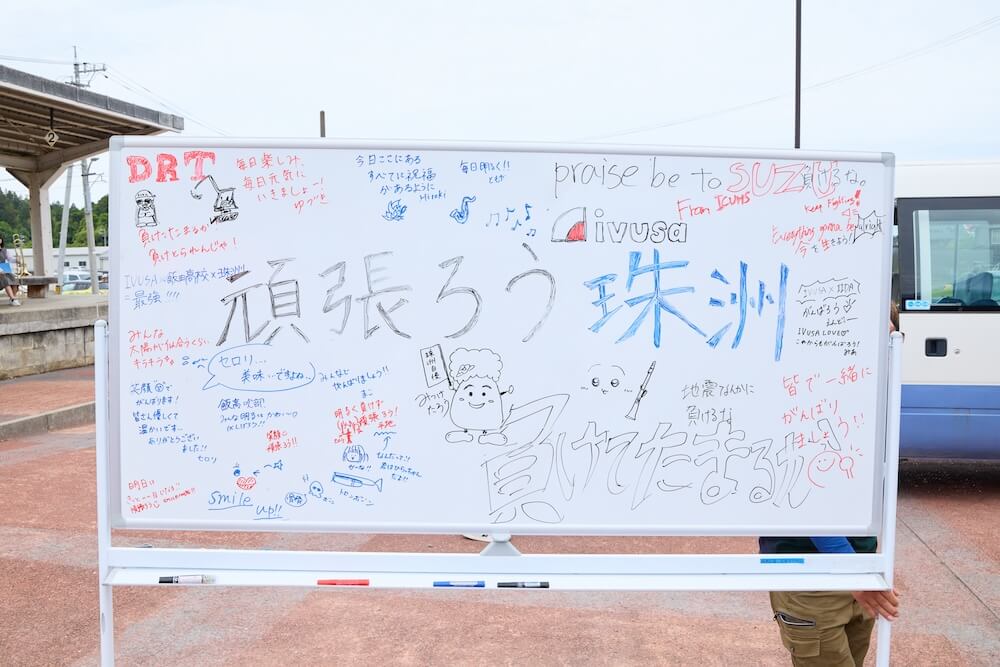 2
DRT
毎日楽しみ、
毎日元気に
いきましょー!
負けてたまるか!
負けとられんじゃ!
今日ここにある
すべてに祝福
があるように
Hiroki
毎日明るく!!
praise be to SUZU
負けるな。
From ICUHS
Keep Fighting!
Everything gonna be alright
今を生きよう!
ivusa
IVUSA×飯田高校×珠洲
=最強!!!!
頑張ろう 珠洲
IVUSA×IIDA
がんばろう
IVUSA LOVE
みんな
太陽が似合うくらい
キラキラな
セロリ…
美味いですよね。
笑顔で
がんばります!
皆さん優しくて
温かいです…
ありがとうござい
ました!!
セロリ
飯高吹部
がんばろう!!
みんなと
がんばりましょう!
明るく負けず
頑張ろう!
笑顔で
頑張ろう!!
珠洲自慢
みつけ
たろう
地震なんかに
負けるな
皆で一緒に
がんばり
ましょう!!
負けてたまるか
なんだって!!
トロンボーン
明日は
smile
up!!